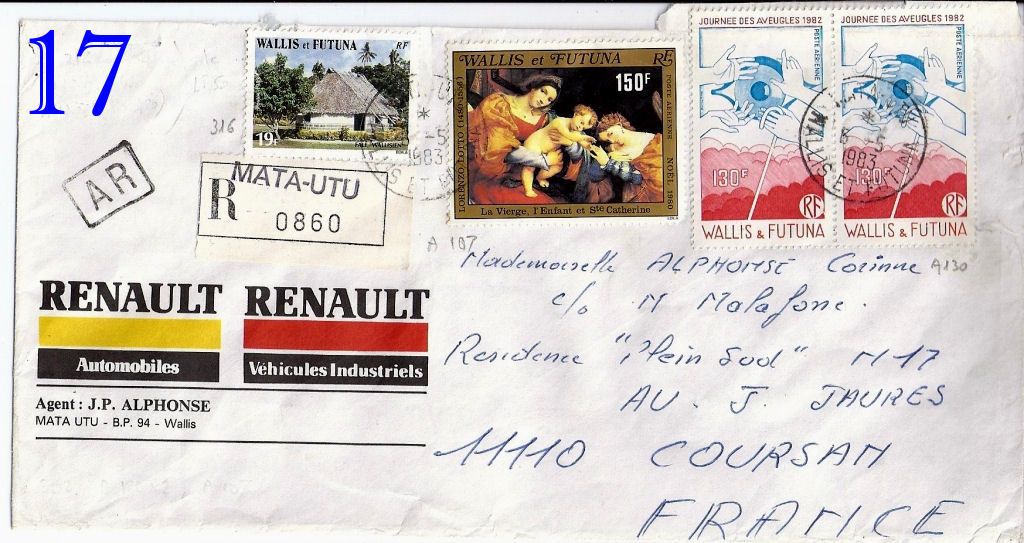 17
WALLIS et FUTUNA RF
19F
FALE WALLISIEN
316
WALLIS et FUTUNA RF
150F
LORENZO LOTTO (1480-1556)
POSTE AÉRIENNE NOËL 1980
La Vierge, l'Enfant et Ste Catherine
JOURNEE DES AVEUGLES 1982
POSTE AÉRIENNE
130F
RF
WALLIS & FUTUNA
JOURNEE DES AVEUGLES 1982
POSTE AÉRIENNE
130F
RF
WALLIS & FUTUNA
1983
1983
AR
R MATA-UTU
0860
A 107
A130
RENAULT
Automobiles
RENAULT
Véhicules Industriels
Agent : J.P. ALPHONSE
MATA UTU - B.P. 94 - Wallis
Mademoiselle ALPHONSE Corinne
c/o M Malafone.
Residence "Plein Sud" N17
AU. J. JAURES
11110 COURSAN
FRANCE